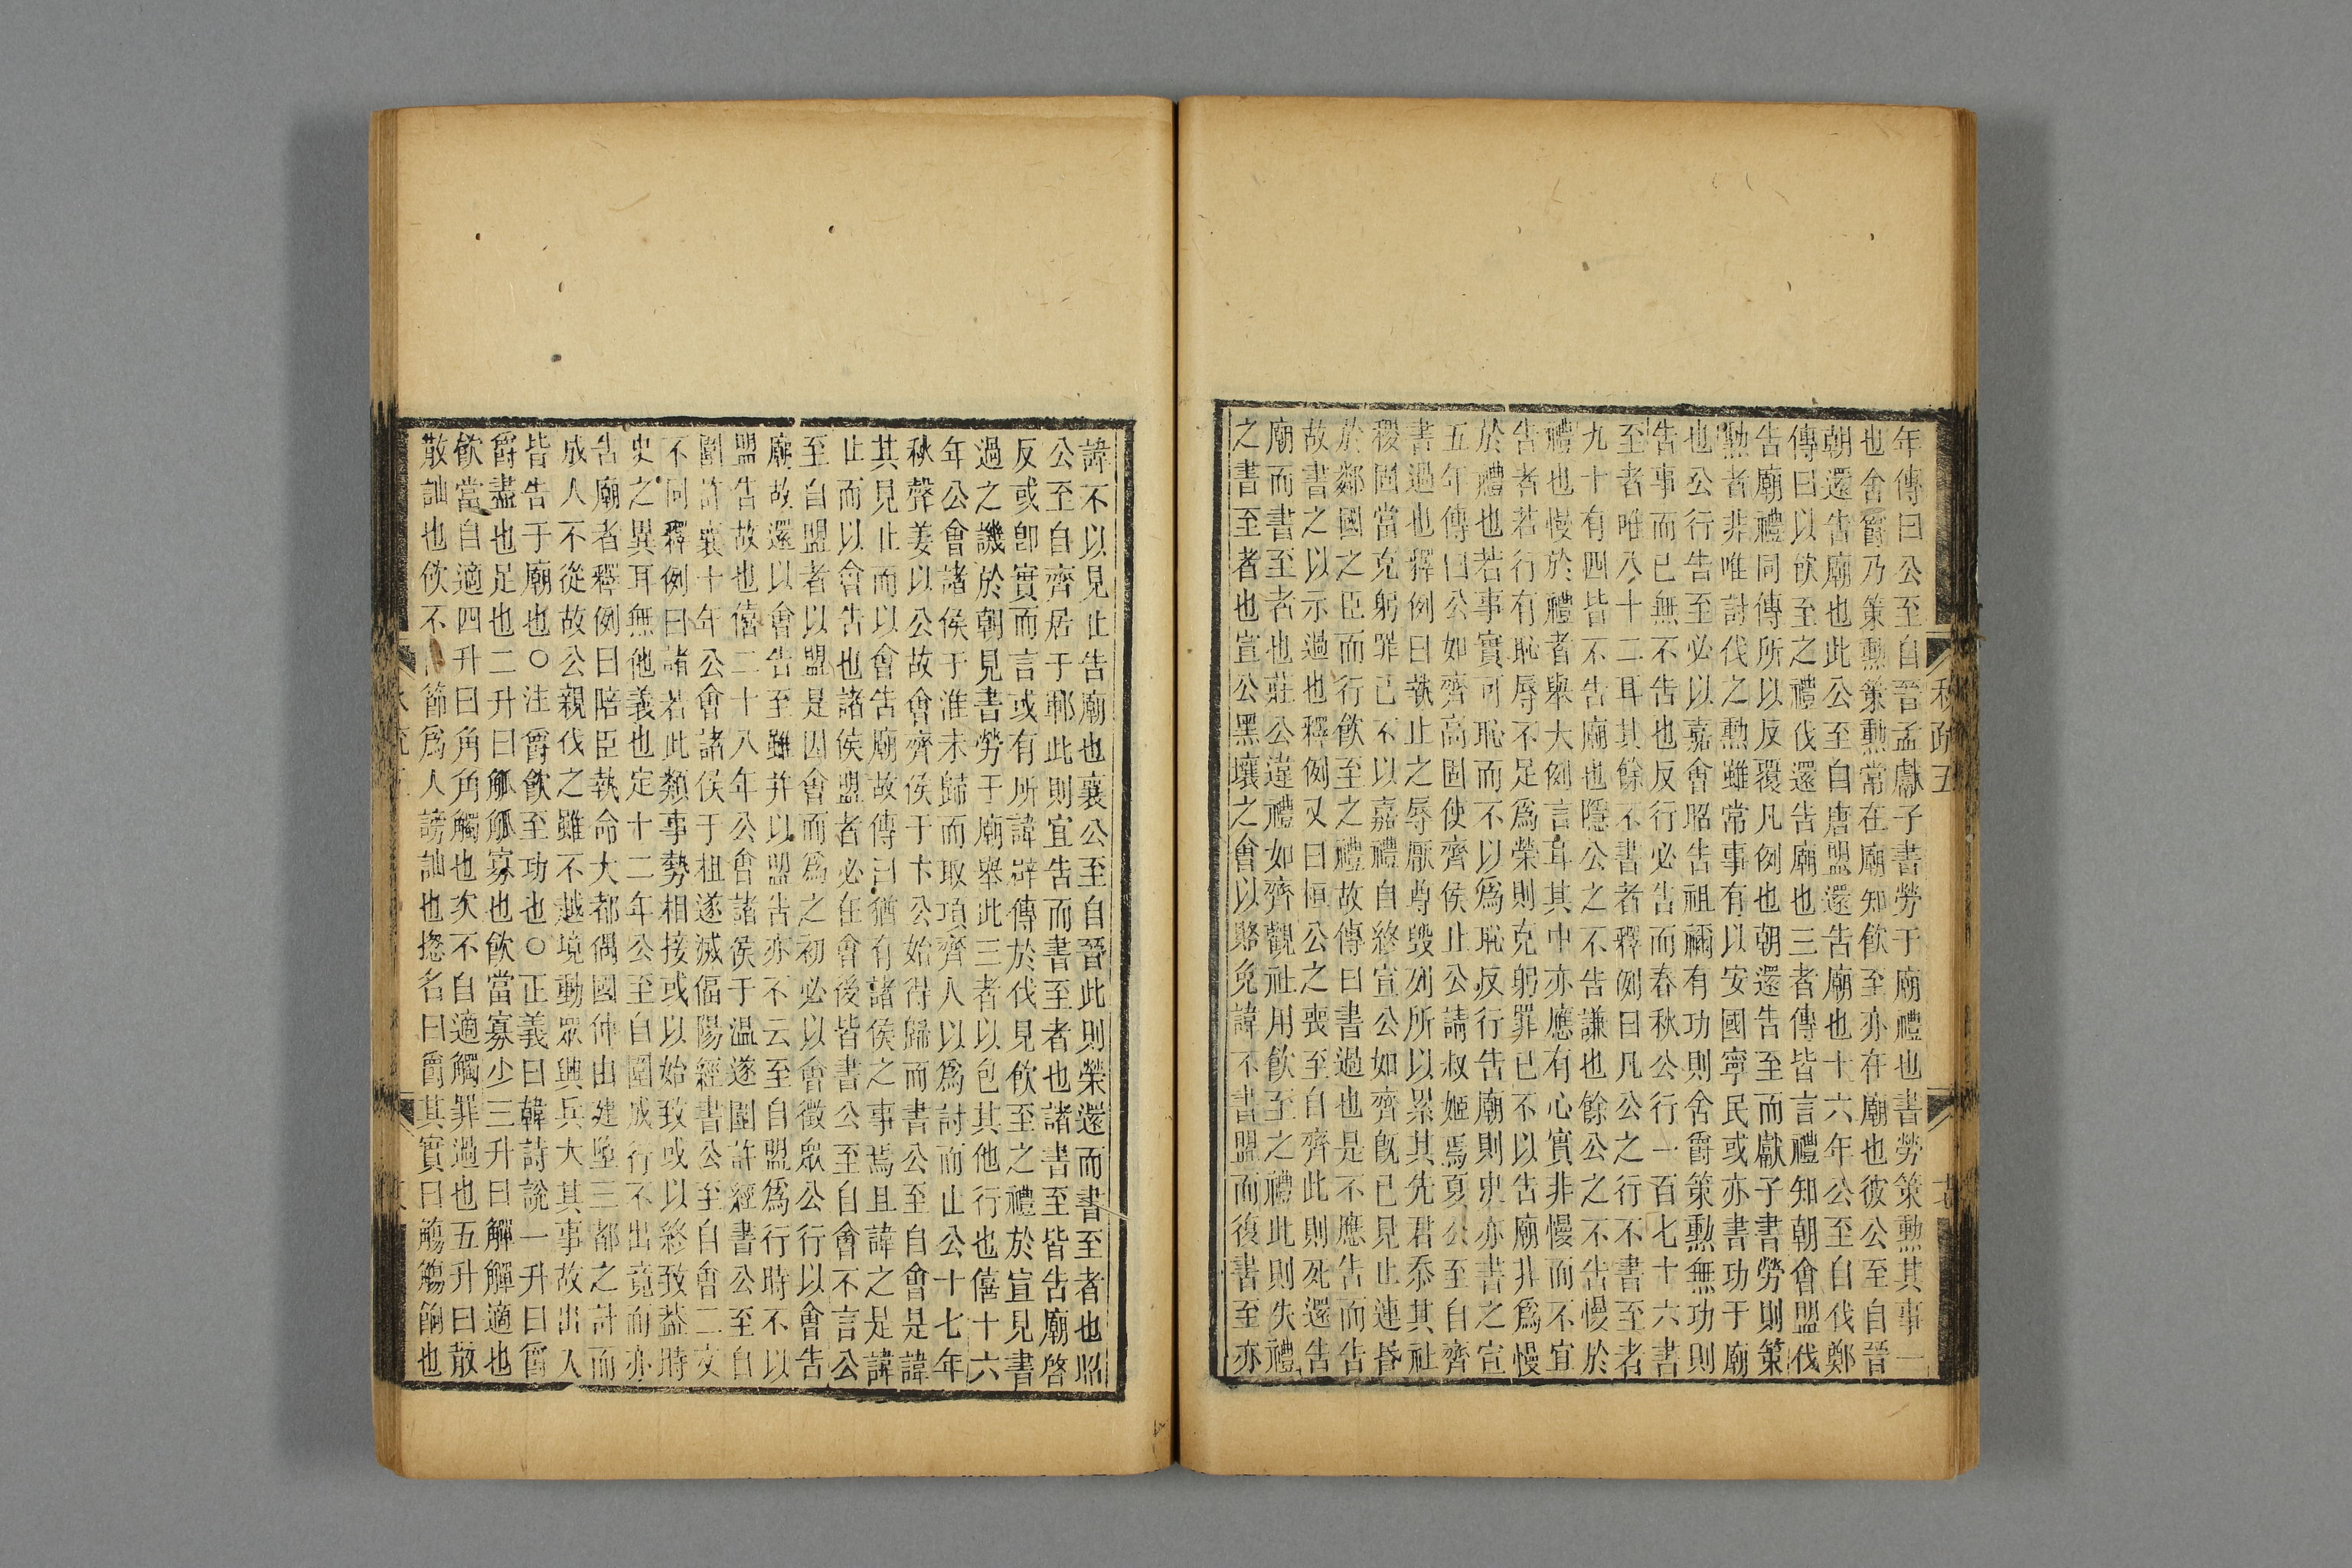 年傳曰公至自晉孟獻子書勞于廟禮也書勞策勳其事一
也舍爵乃策勳策勳常在廟知飮至亦在廟也彼公至自晉
朝還告廟也此公至自唐盟還告廟也十六年公至自伐鄭
傳曰以飮至之禮伐還告廟也三者傳皆言禮知朝會盟伐
告廟禮同傳所以反覆凡例也朝還告至而獻子書勞則策
勳者非唯討伐之勳雖常事有以安國寧民或亦書功于廟
也公行告至必以嘉會昭告祖禰有功則舍爵策勳無功則
告事而已無不告也反行必告而春秋公行一百七十六書
至者唯八十二耳其餘不書者釋例曰凡公之行不書至者
九十有四皆不告廟也隱公之不告謙也餘公之不告慢於
禮也慢於禮者舉大例言耳其中亦應有心實非慢而不宜
告者若行有恥辱不足爲榮則克躬罪已不以告廟非爲慢
於禮也若事實可恥而不以爲恥反行告廟則史亦書之宣
五年傳曰公如齊高固使齊侯止公請叔姬焉夏公至自齊
書過也釋例曰執止之辱厭尊毀列所以累其先君忝其社
稷固當克躬罪已不以嘉禮自終宣公如齊旣已見止連昏
於鄰國之臣而行飮至之禮故傳曰書過也是不應告而告
故書之以示過也釋例又曰桓公之喪至自齊此則死還告
廟而書至者也莊公違禮如齊觀社用飮至之禮此則失禮
之書至者也宣公黑壤之會以賂免諱不書盟而復書至亦
諱不以見止告廟也襄公至自晉此則榮還而書至者也昭
公至自齊居于鄆此則宜告而書至者也諸書至皆告廟啓
反或卽實而言或有所諱辟傳於伐見飮至之禮於宣見書
過之譏於朝見書勞于廟舉此三者以包其他行也僖十六
年公會諸侯于淮未歸而取項齊人以爲討而止公十七年
秋聲姜以公故會齊侯于卞公始得歸而書公至自會是諱
其見止而以會告廟故傳曰猶有諸侯之事焉且諱之是諱
止而以會告也諸侯盟者必在會後皆書公至自會不言公
至自盟者以盟是因會而爲之初必以會徵眾公行以會告
廟故還以會告至雖并以盟告亦不云至自盟爲行時不以
盟告故也僖二十八年公會諸侯于溫遂圍許經書公至自
圍許襄十年公會諸侯于柤遂滅偪陽經書公至自會二文
不同釋例曰諸若此類事勢相接或以始致或以終致蓋時
史之異耳無他義也定十二年公至自圍成行不出竟而亦
告廟者釋例曰陪臣執命大都偶國仲由建墮三都之計而
成人不從故公親伐之雖不越境動眾興兵大其事故出入
皆告于廟也○注爵飮至功也○正義曰韓詩說一升曰爵
爵盡也足也二升曰觚觚寡也飮當寡少三升曰觶觶適也
飮當自適四升曰角角觸也不自適觸罪過也五升曰散
散訕也飮不節爲人謗訕也揔名曰爵其實曰觴觴餉也
秋疏五